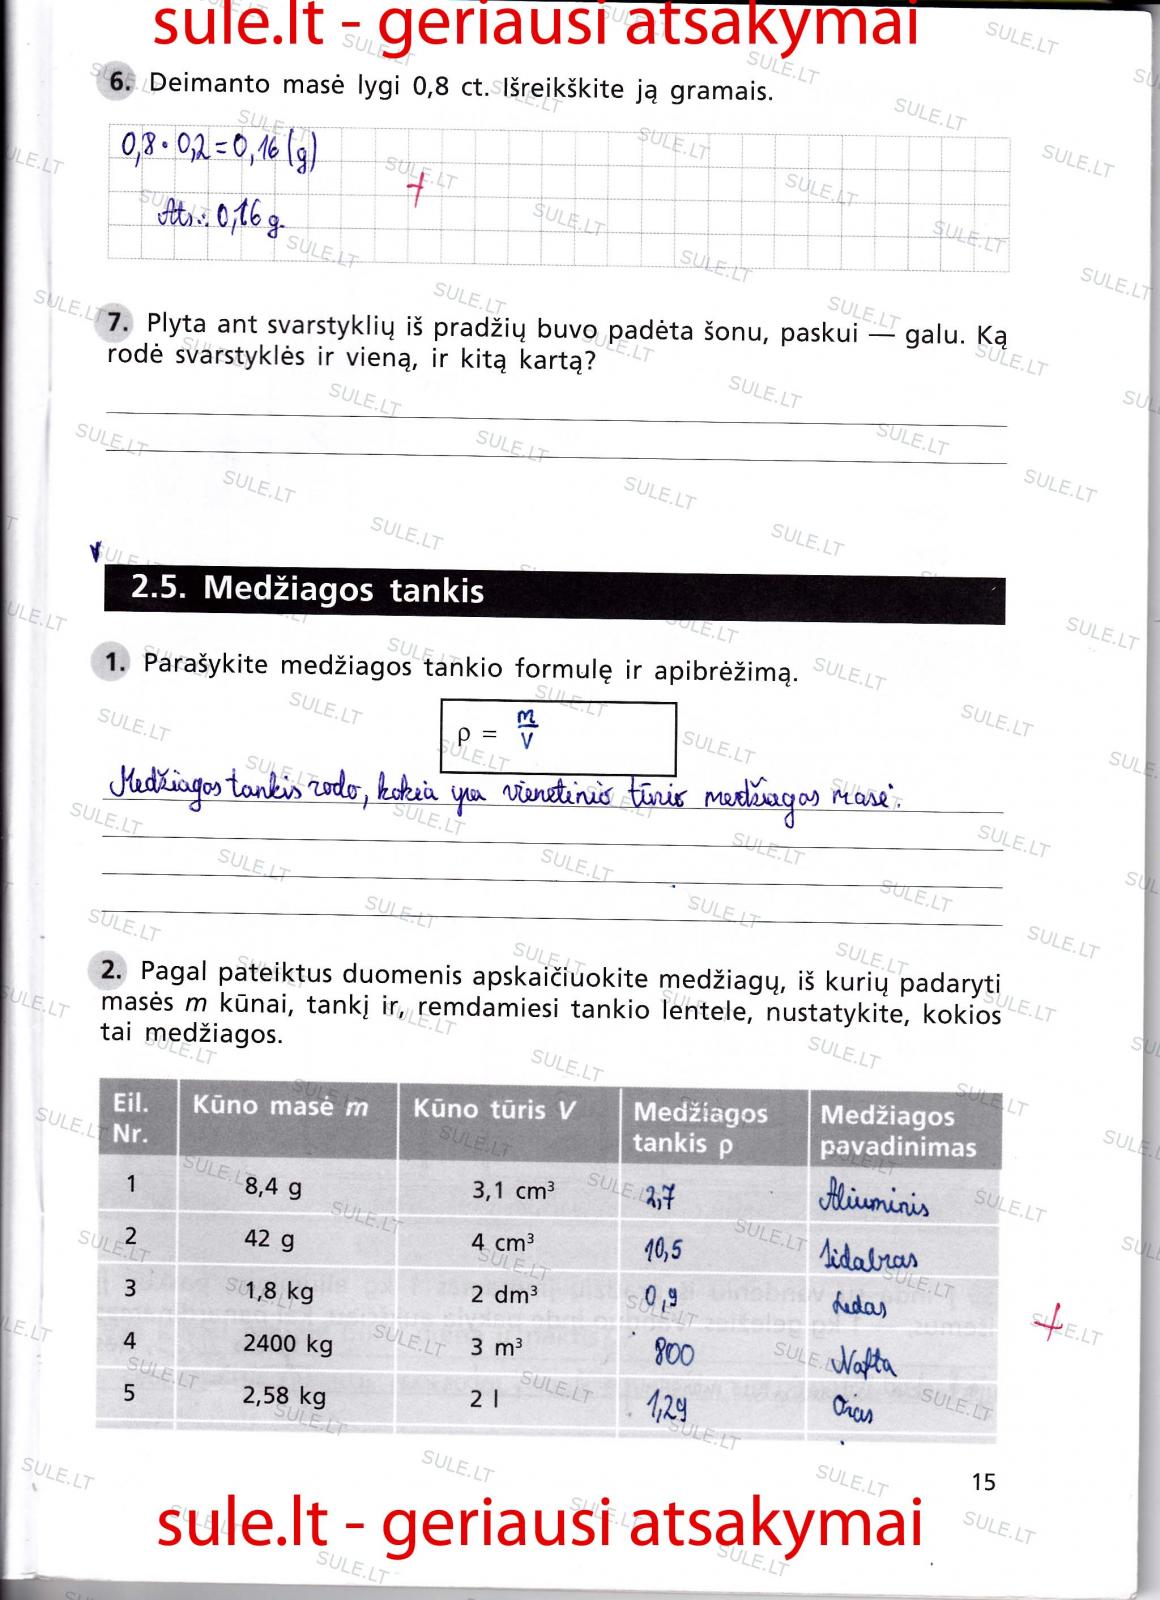 sule.lt - geriausi atsakymai
6. Deimanto masė lygi 0,8 ct. Išreikškite ją gramais.
0,8 · 0,2 = 0,16 (g)
Ats.: 0,16 g.
7. Plyta ant svarstyklių iš pradžių buvo padėta šonu, paskui — galu. Ką
rodė svarstyklės ir vieną, ir kitą kartą?
2.5. Medžiagos tankis
1. Parašykite medžiagos tankio formulę ir apibrėžimą.
ρ = m/V
Medžiagos tankis rodo, kokia yra vienetinio tūrio medžiagos masė.
2. Pagal pateiktus duomenis apskaičiuokite medžiagų, iš kurių padaryti
masės m kūnai, tankį ir, remdamiesi tankio lentele, nustatykite, kokios
tai medžiagos.
Eil. Nr. Kūno masė m Kūno tūris V Medžiagos tankis ρ Medžiagos pavadinimas
1 8,4 g 3,1 cm³ 2,7 Aliuminis
2 42 g 4 cm³ 10,5 Sidabras
3 1,8 kg 2 dm³ 0,9 Ledas
4 2400 kg 3 m³ 800 Nafta
5 2,58 kg 2 l 1,29 Oras
15
sule.lt - geriausi atsakymai
SULE.LT